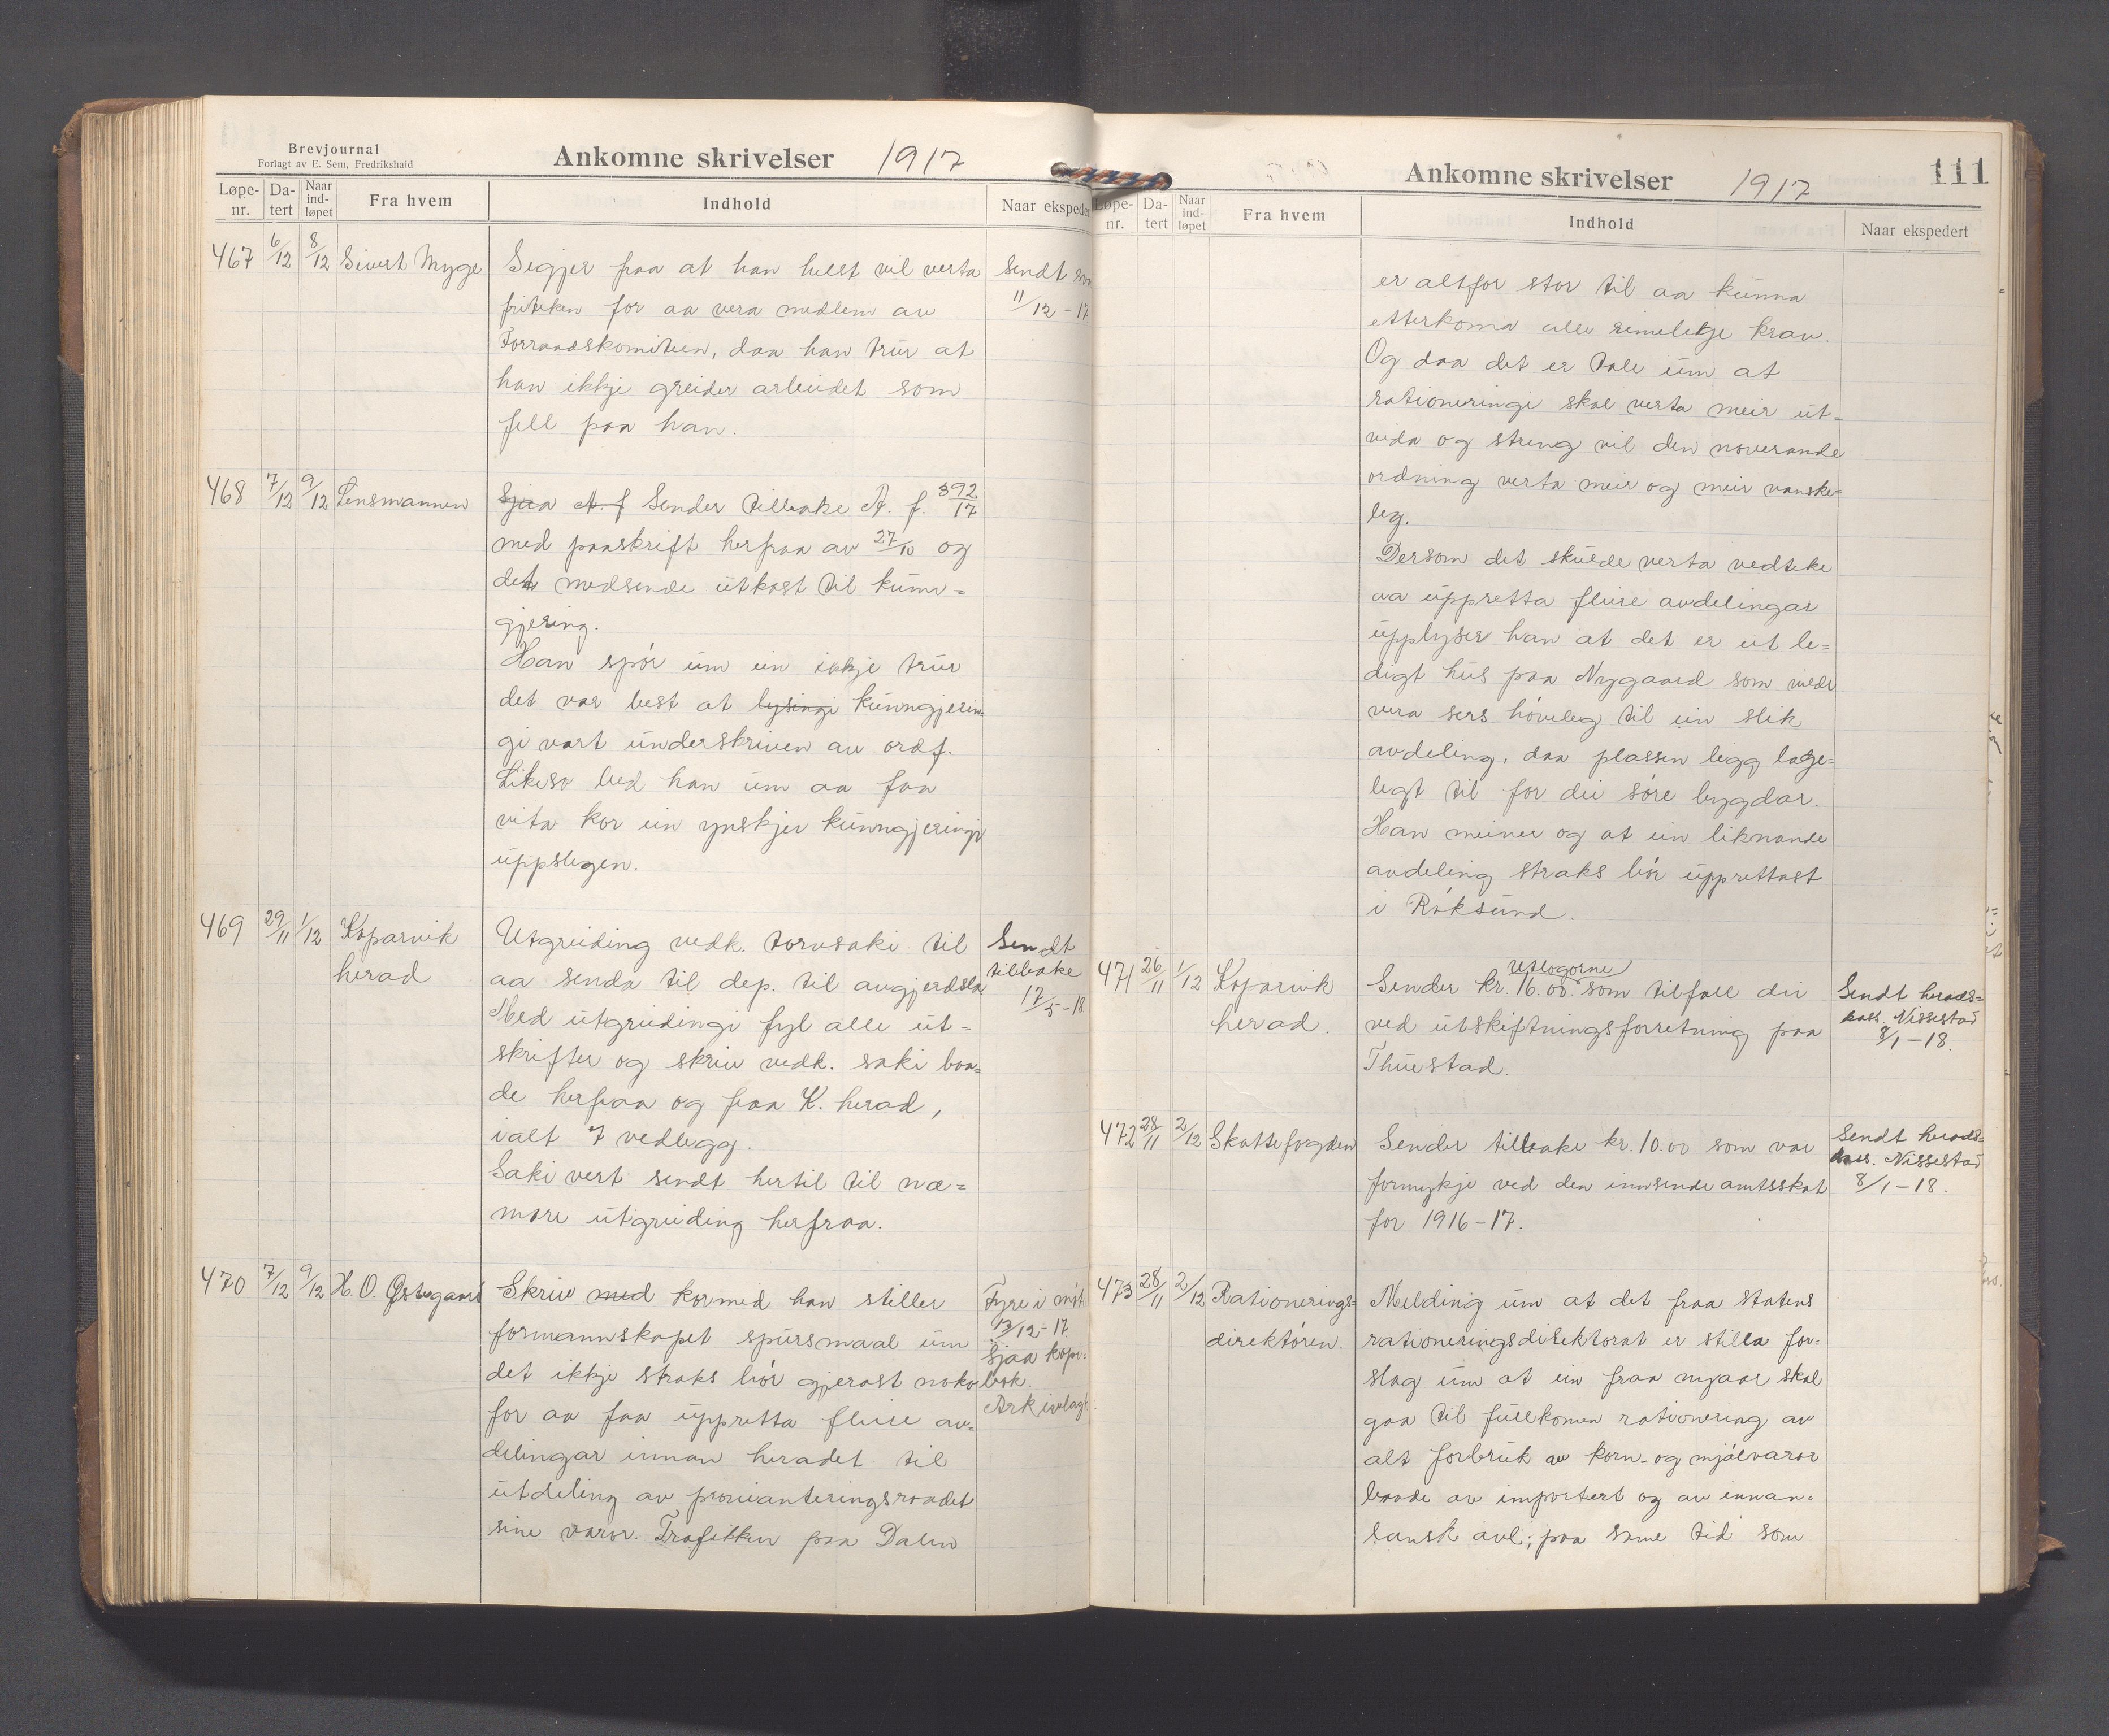 Brevjournal
Forlagt av E. Sem, Fredrikshald
Ankomne skrivelser 1917
Løpe-nr. Da-tert Naar ind-løpet Fra hvem Indhold Naar ekspedert
467 6/12 8/12 Sivert Myge Segjer fraa at han helst vil verta Sendt
friteken for aa vera medlem av 11/12-17
Forraadskomiteen, daa han trur at
han ikkje greider arbeidet som
fell paa han.
468 7/12 9/12 Lensmannen Sjaa A. f Sender tilbake A. f. 392/17
med paaskrift herfraa av 27/10 og
det medsende utkast til kunn=
gjering.
Han spør um ein ikkje trur
det var best at lysingi kunngjerin=
gi vart underskriven av ordf.
Likeso bed han um aa faa
vita kor ein ynskjer kunngjeringi
uppslegen.
469 29/11 1/12 Koparvik Utgreiding vedk. torvsaki til Sendt
herad aa senda til dep. til avgjerdsla tilbake
Med utgreidingi fyl alle ut= 17/5-18
skrifter og skriv vedk. saki baa=
de herfraa og fraa K. herad,
ialt 7 vedlegg.
Saki vert sendt hertil til næ=
mare utgreiding herfraa.
470 7/12 9/12 H. O. Østegaard Skriv med kormed han stiller Fyre i møt
formannskapet spursmaal um 13/12-17.
det ikkje straks bør gjerast noko Sjaa kopi=
for aa faa uppretta fleire av= bok.
delingar innan heradet til Arkivlagt.
utdeling av provianteringsraadet
sine varor. Trafikken paa Dalen
Ankomne skrivelser 1917 111
Løpe-nr. Da-tert Naar ind-løpet Fra hvem Indhold Naar ekspedert
er altfor stor til aa kunna
etterkoma alle rimelege krav.
Og daa det er tale um at
rationeringi skal verta meir ut=
vida og streng vil den noverande
ordning verta meir og meir vanske=
leg.
Dersom det skulde verta vedteke
aa uppretta fleire avdelingar
upplyser han at det er et le=
digt hus paa Nygaard som vilde
vera sers høveleg til ein slik
avdeling, daa plassen ligg lage=
legt til for dei søre bygdar.
Han meiner og at ein liknande
avdeling straks bør upprettast
i Røksund.
471 26/11 1/12 Koparvik Sender kr. 16.00. Utlogorne som tilfall dei Sendt herads=
herad. ved utskiftningsforretning paa kass. Nissestad
Thuestad. 8/1-18.
472 28/11 2/12 Skattefogden Sender tilbake kr. 10.00 som var Sendt herads=
formykje ved den innsende amtsskat kass. Nissestad
for 1916-17. 8/1-18.
473 28/11 2/12 Rationerings= Melding um at det fraa statens
direktøren. rationeringsdirektorat er stilla for=
slag um at ein fraa nyaar skal
gaa til fullkomen rationering av
alt forbruk av korn- og mjølvaror
baade av importert og av innan=
landsk avl; paa same tid som